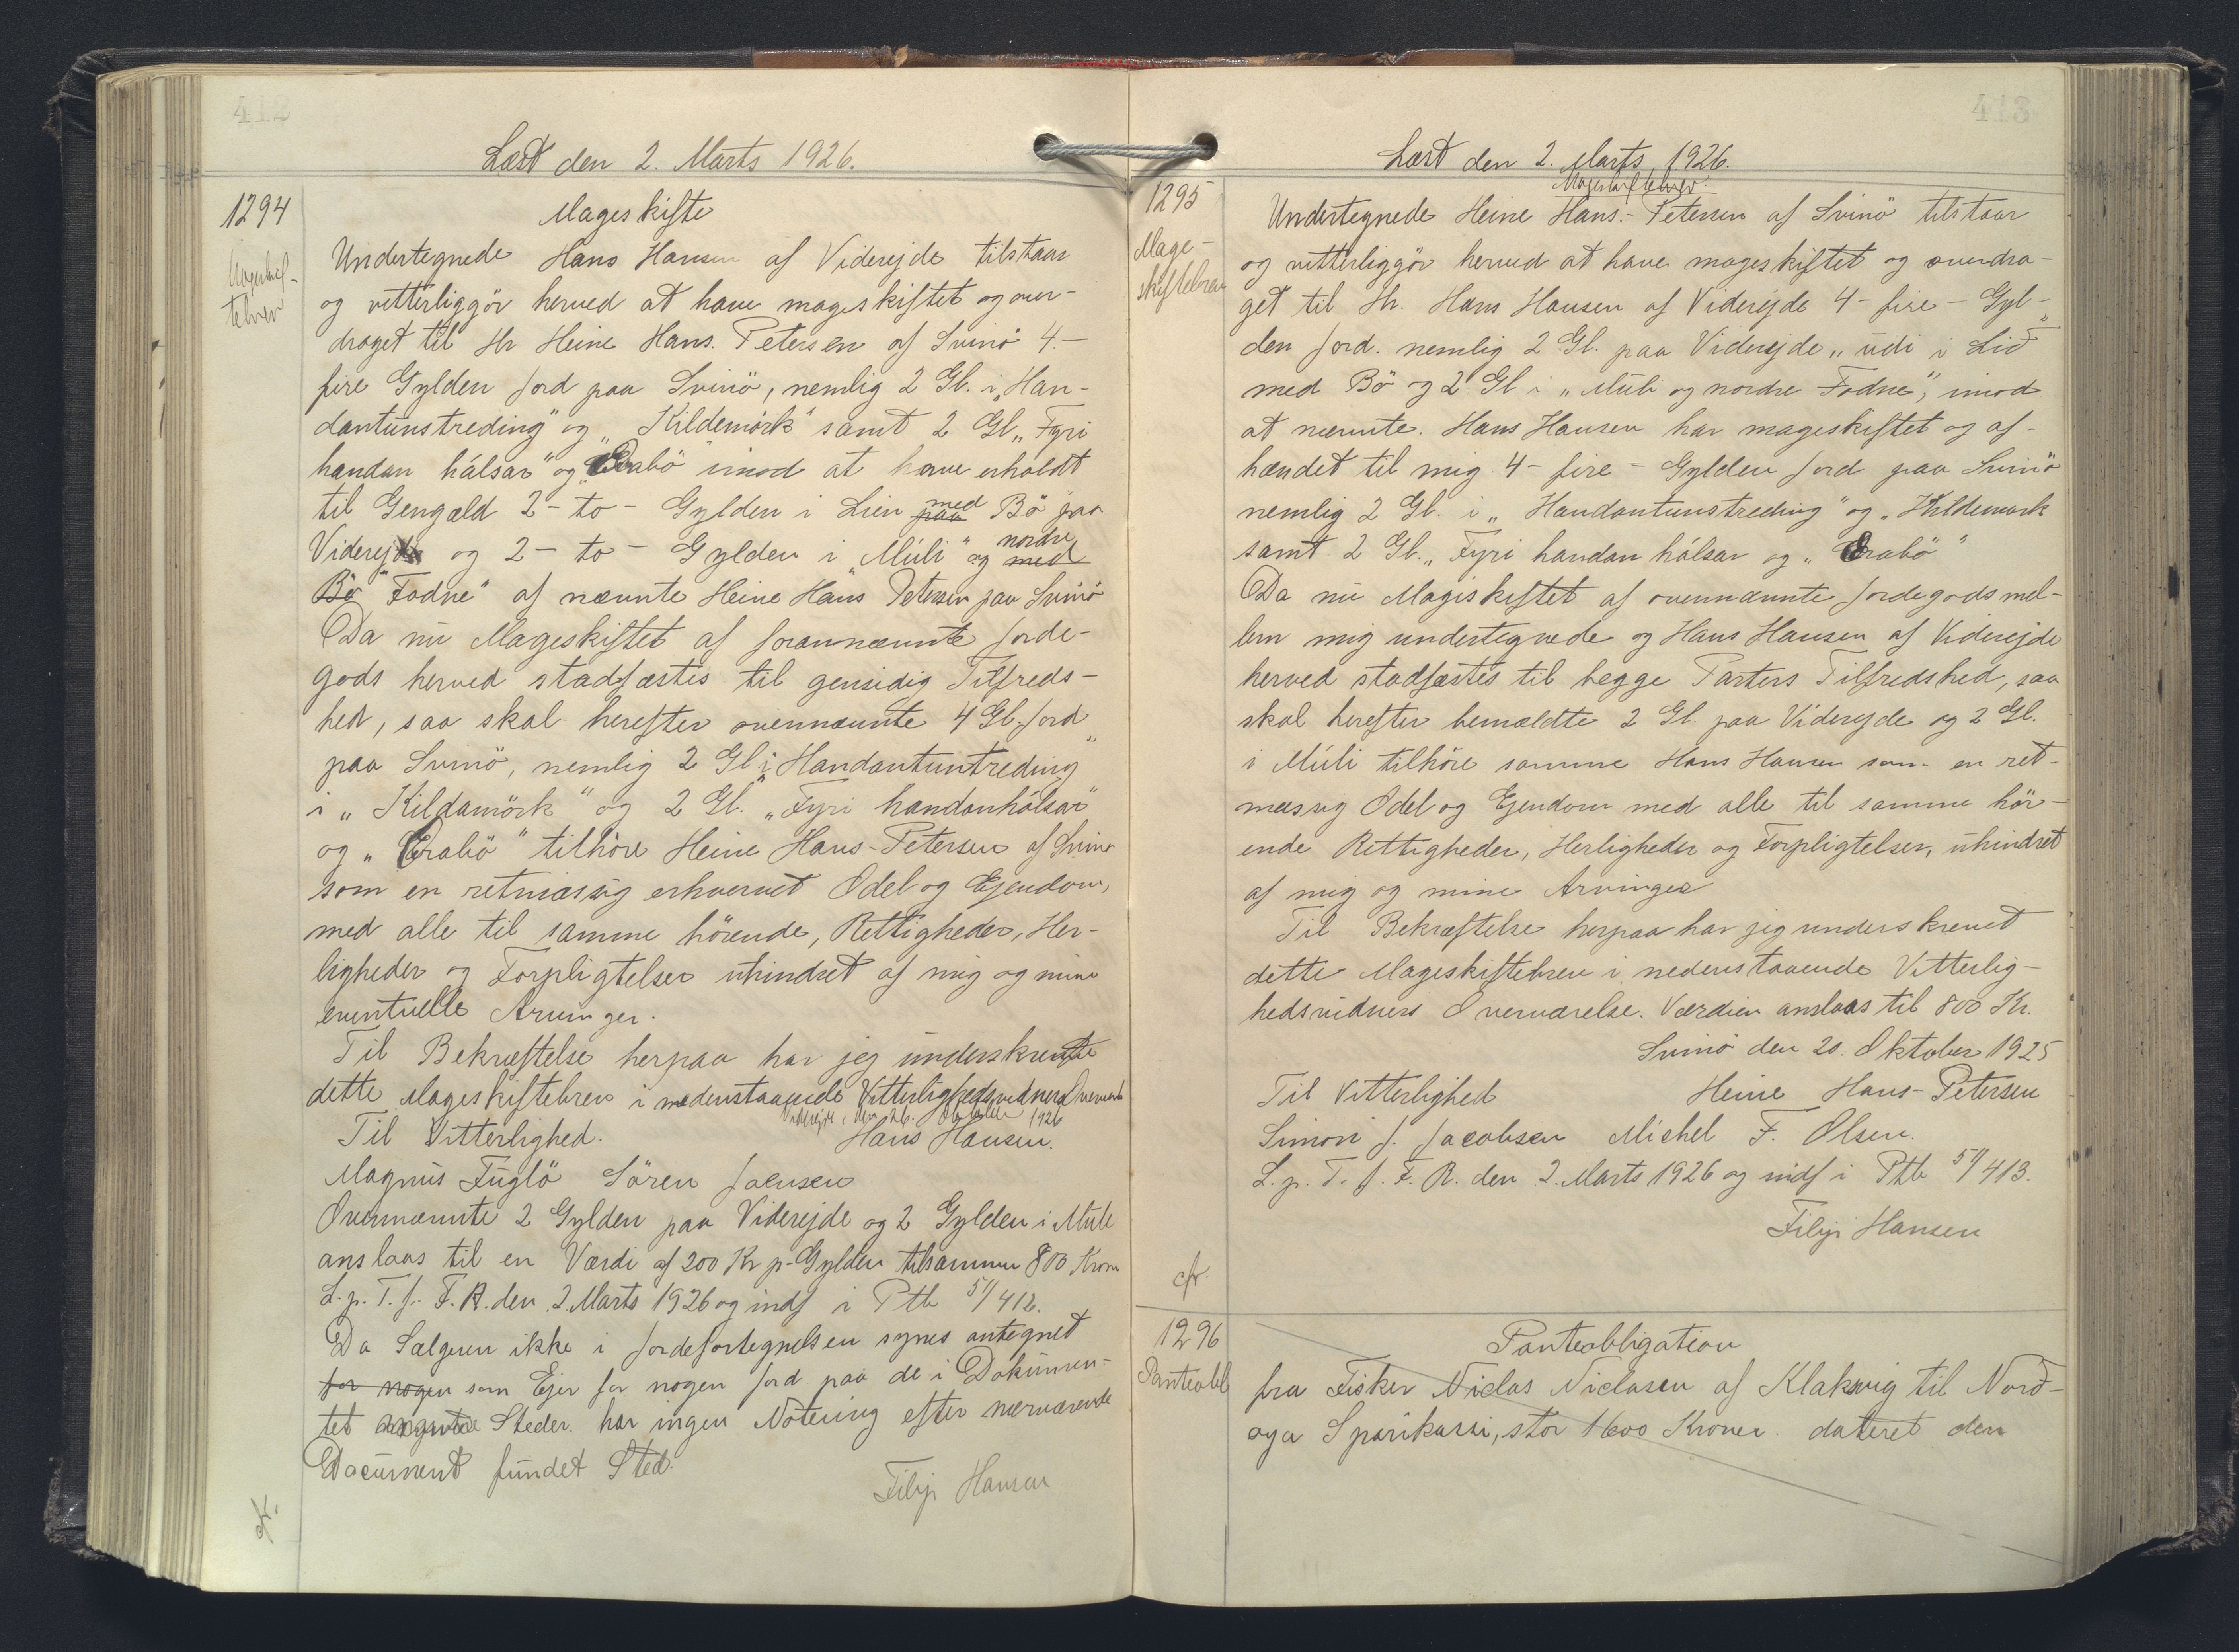 412
Læst den 2. Marts 1926.
1294
Mageskif-
tebrev
Mageskifte
Undertegnede Hans Hansen af Viderejde tilstaar
og vitterliggör herved at have mageskiftet og over-
draget til Hr Heine Hans. Petersen af Svinö 4.-
fire Gylden Jord paa Svinö, nemlig 2 Gl. i „Han-
dantunstreding" og „Kildemörk" samt 2 Gl. „Fyri
handan hálsar" og „Erabö" imod at have erholdt
til Gengæld 2- to - Gylden i Lien paa med Bö paa
Viderejde og 2- to - Gylden i „Múli" og med nordre
Bö "Fodne" af nævnte Heine Hans Petersen paa Svinö
Da nu Mageskiftet af forannævnte Jorde-
gods herved stadfæstes til gensidig Tilfreds-
hed, saa skal herefter ovennævnte 4 Gl. Jord
paa Svinö, nemlig 2 Gl. i „Handantuntreding"
i „Kildamörk" og 2 Gl. „Fyri handanhálsar"
og „Erabö" tilhöre Heine Hans-Petersen af Svinö
som en retmæssig erhvervet Odel og Ejendom,
med alle til samme hörende, Rettigheder, Her-
ligheder og Forpligtelser uhindret af mig og mine
eventuelle Arvinger.
Til Bekræftelse herpaa har jeg underskrevet
dette Mageskiftebrev i nedenstaaende Vitterlighedsvidners Overværelse
Viderejde, den 26. Oktober 1926
Til Vitterlighed. Hans Hansen.
Magnus Fuglö Sören Joensen
Ovennævnte 2 Gylden paa Viderejde og 2 Gylden i Mule
anslaas til en Værdi af 200 Kr p. Gylden tilsammen 800 Kroner
L. p. T. f. F. R. den 2. Marts 1926 og indf i Ptb 5y/412.
Da Sælgeren ikke i Jordefortegnelsen synes antegnet
for nogen som Ejer for nogen Jord paa de i Dokumen-
tet Steder. har ingen Notering efter nærværende
Document fundet Sted.
Filip Hansen
cfr.
413
Læst den 2. Marts 1926.
1295
Mage-
skiftebrev
Mageskiftebrev
Undertegnede Heine Hans.- Petersen af Svinö tilstaar
og vitterliggör herved at have mageskiftet og overdra-
get til Hr. Hans Hansen af Viderejde 4- fire - Gyl-
den Jord. nemlig 2 Gl. paa Viderejde „udi i Lið"
med Bö og 2 Gl i „Múli og nordre Fodne", imod
at nævnte. Hans Hansen har mageskiftet og af-
hændet til mig 4- fire - Gylden Jord paa Svinö
nemlig 2 Gl. i „Handantunstreding" og „Kildemørk
samt 2 Gl. „Fyri handan hálsar og „Erabö"
Da nu Mageskiftet af ovennævnte Jordegods mel-
lem mig undertegnede og Hans Hansen af Viderejde
herved stadfæstes til begge Parters Tilfredshed, saa
skal herefter bemældte 2 Gl. paa Viderejde og 2 Gl.
i Múli tilhöre samme Hans Hansen som en ret-
mæssig Odel og Ejendom med alle til samme hör-
ende Rettigheder, Herligheder og Forpligtelser, uhindret
af mig og mine Arvinger
Til Bekræftelse herpaa har jeg underskrevet
dette Mageskiftebrev i nedenstaaende Vitterlig-
hedsvidners Overværelse. Værdien anslaas til 800 Kr.
Svinö den 20. Oktober 1925
Til Vitterlighed Heine Hans-Petersen
Simon J. Jacobsen Michel F. Olsen.
L. p. T. f. F. R. den 2. Marts 1926 og indf i Ptb 5y/413.
Filip Hansen
cfr.
1296
Panteobl
Panteobligation
fra Fisker Niclas Niclasen af Klaksvig til Norð-
oya Sparikassi, stor 1600 Kroner. dateret den